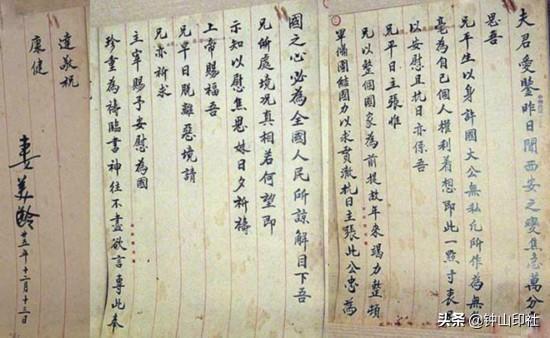 夫君愛鑒昨日聞西安之變焦急萬分
思吾
兄平生以身許國大公無私凡所作為無
毫為自己個人權利着想即此一點寸衷
以安慰且抗日亦係吾
兄平日主張惟
兄以整個國家為前提故年來竭力整頓
軍備團結國力以求貫澈抗日主張此公忠為
國之心必為全國人民所諒解目下吾
兄所處境況真相若何望即
示知以慰焦思妹日夕祈禱
上帝賜福吾
兄早日脫離惡境請
兄亦祈求
主宰賜予安慰為國
珍重為禱臨書神往不盡欲言專此奉
達敬祝
康健
妻美齡
廿五年十二月十三日
头条 @钟山印社